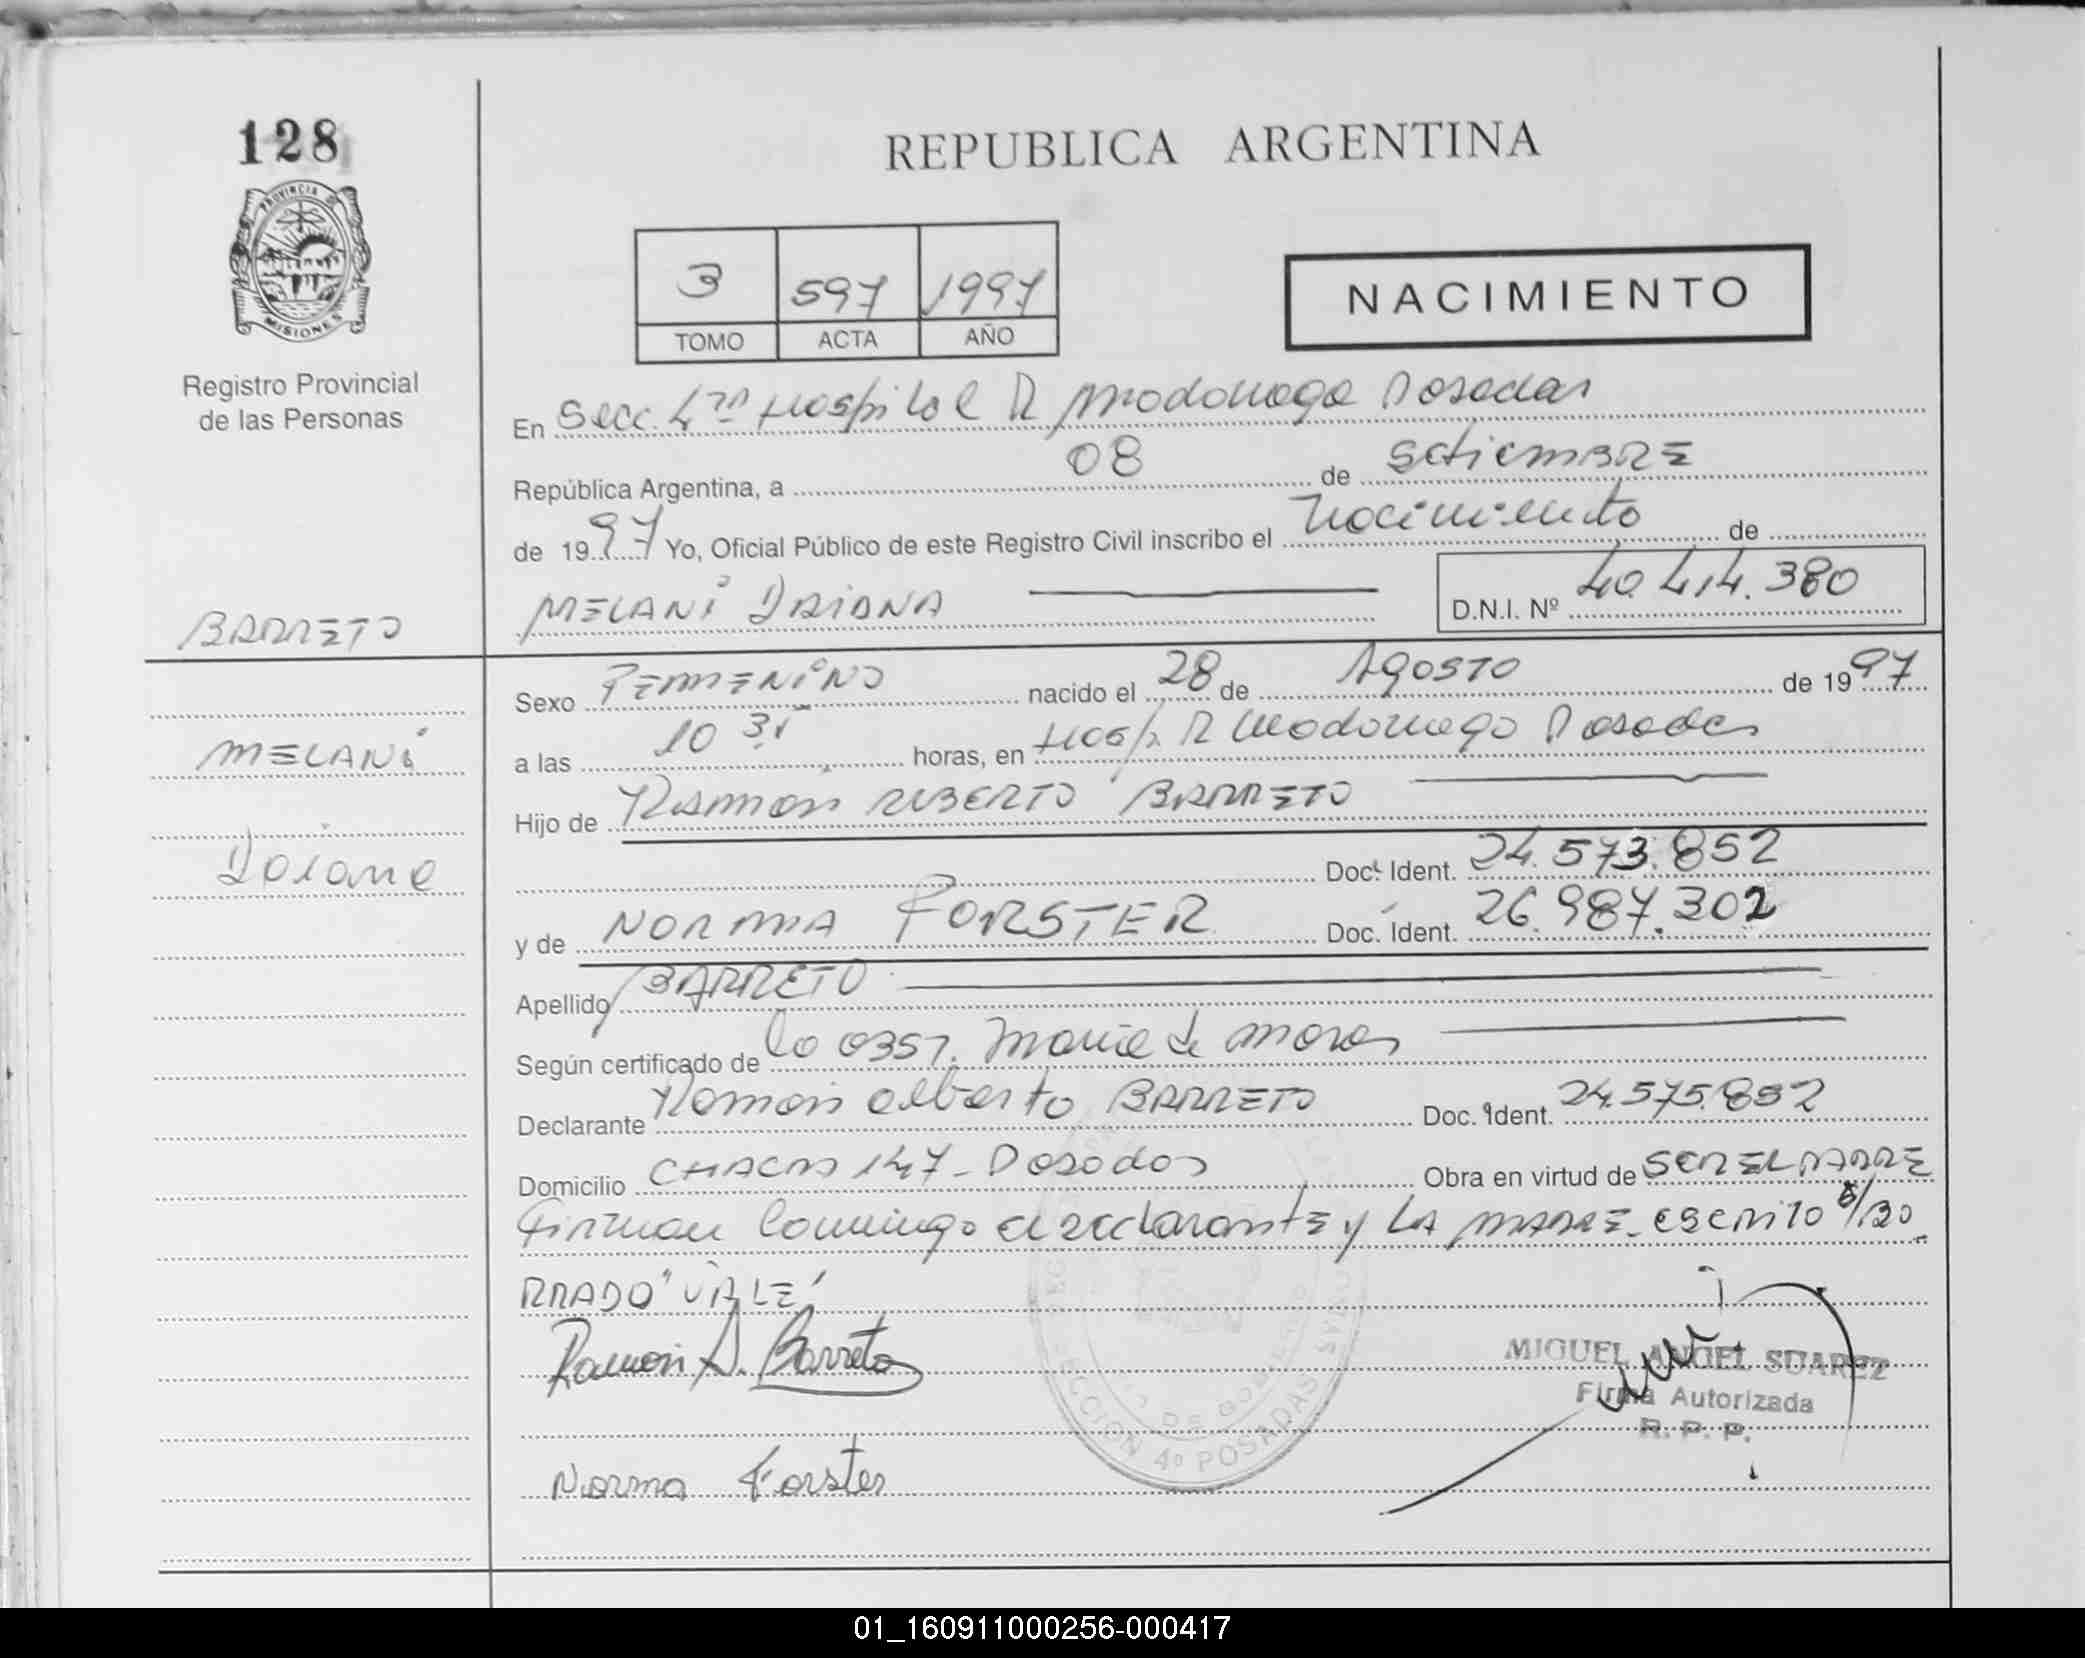 128
PROVINCIA DE
MISIONES
Registro Provincial
de las Personas
REPUBLICA ARGENTINA
3 597 1997
TOMO ACTA AÑO
NACIMIENTO
En Secc. 4ta Hospital R Madariaga Posadas
República Argentina, a 08 de Setiembre
de 1997 Yo, Oficial Público de este Registro Civil inscribo el Nacimiento de
MELANI DAIANA D.N.I. Nº 40.414.380
BARRETO
MELANI
Daiana
Sexo FEMENINO nacido el 28 de Agosto de 1997
a las 10 35 horas, en Hosp. R Madariaga Posadas
Hijo de Ramón ALBERTO BARRETO
Doc. Ident. 24.573.852
y de NORMA FORSTER Doc. Ident. 26.987.302
Apellido BARRETO
Según certificado de la obst. Maria de
Declarante Ramón Alberto BARRETO Doc. Ident. 24.575.852
Domicilio CHACRA 147 - Posadas Obra en virtud de SER EL PADRE
Firman conmigo el declarante y LA MADRE - escrito s/BO
RRADO "VALE"
Ramon A. Barreto
Norma Forster
MIGUEL ANGEL SUAREZ
Firma Autorizada
R. P. P.
SECCION 4º POSADAS
DE GOBIERNO
01_160911000256-000417